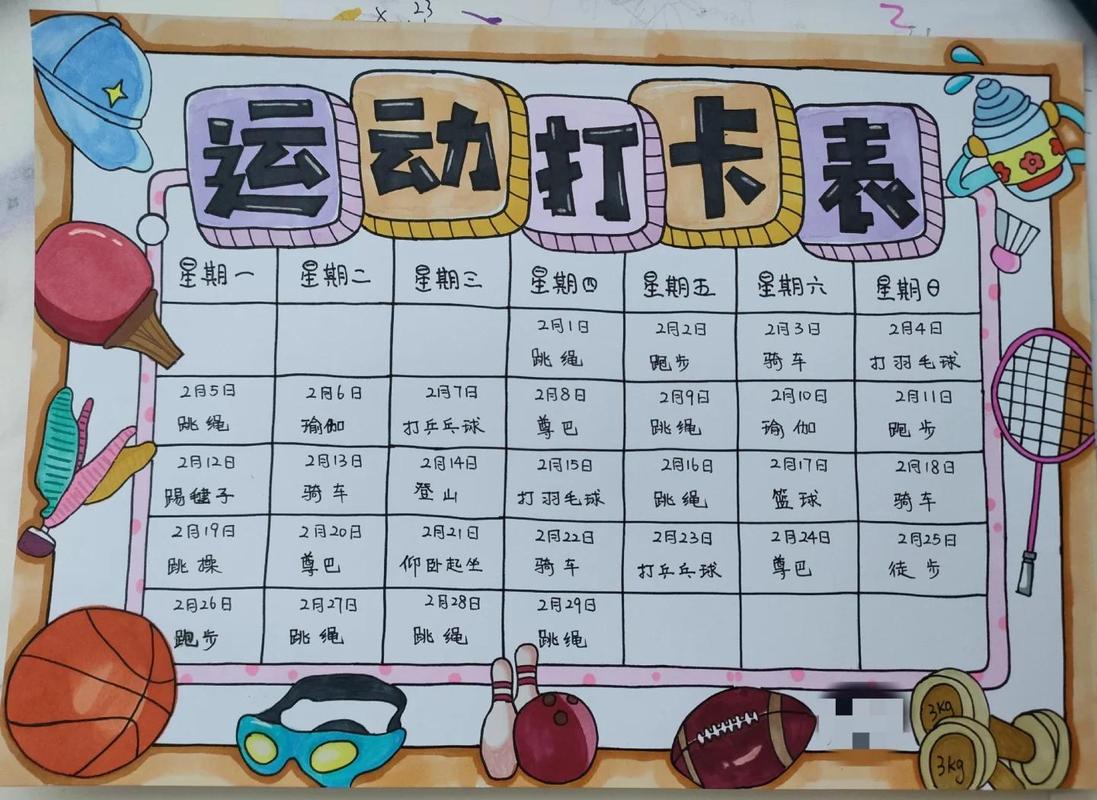 23
x
运动打卡表
星期一 星期二 星期三 星期四 星期五 星期六 星期日
2月1日 2月2日 2月3日 2月4日
跳绳 跑步 骑车 打羽毛球
2月5日 2月6日 2月7日 2月8日 2月9日 2月10日 2月11日
跳绳 瑜伽 打乒乓球 尊巴 跳绳 瑜伽 跑步
2月12日 2月13日 2月14日 2月15日 2月16日 2月17日 2月18日
踢毽子 骑车 登山 打羽毛球 跳绳 篮球 骑车
2月19日 2月20日 2月21日 2月22日 2月23日 2月24日 2月25日
跳操 尊巴 仰卧起坐 骑车 打乒乓球 尊巴 徒步
2月26日 2月27日 2月28日 2月29日
跑步 跳绳 跳绳 跳绳
3kg
3kg